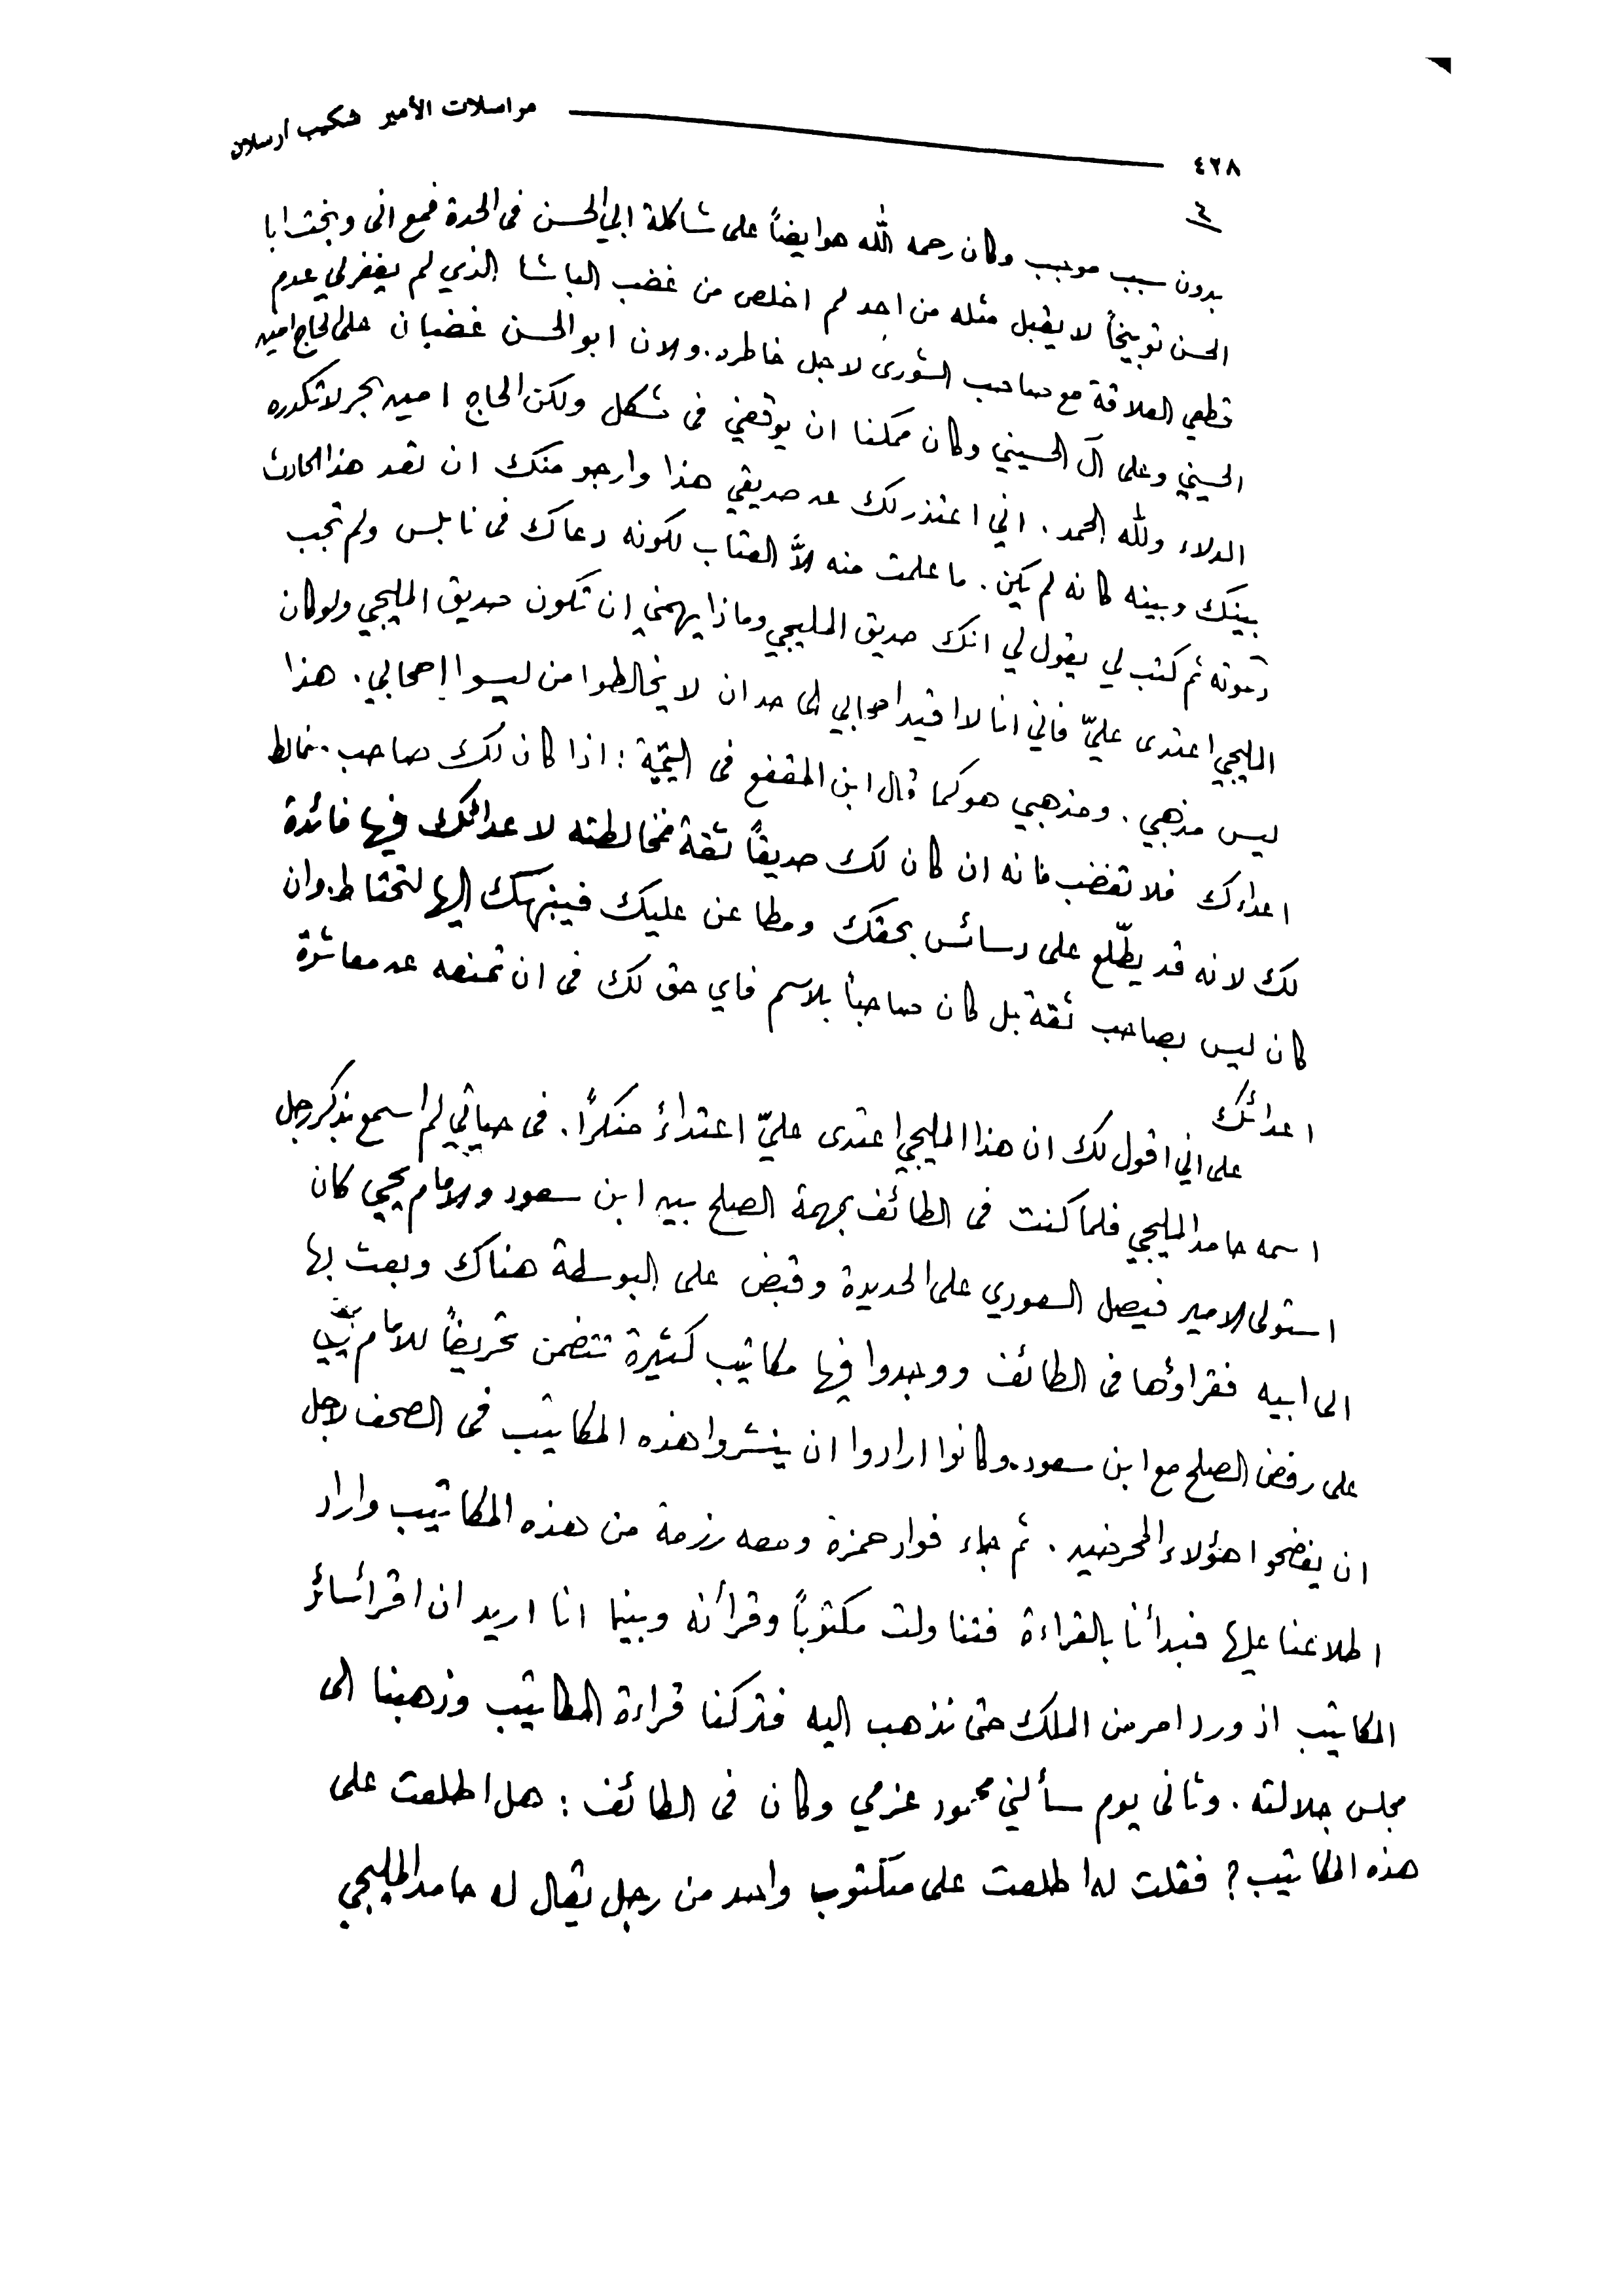 ٤٢٨ مراسلات الأمير شكيب أرسلان
٤
بدون سبب موجب وكان رحمه الله هو ايضاً على شاكلة ابي الحسن فى الحدة فمع انى وبخت ابا
الحسن توبيخاً لا يقبل مثله من احد لم اخلص من غضب الباشا الذي لم يغفر لي عدم
قطعي العلاقة مع صاحب الشورى لاجل خاطره. والان ابو الحسن غضبان على الحاج امين
الحسيني وعلى آل الحسيني وكان ممكنا ان يوقعني فى مشكل ولكن الحاج امين بحر لا تكدره
الدلاء ولله الحمد. اني اعتذر لك عن صديقي هذا وارجو منك ان تعد هذا الحادث
بينك وبينه كانه لم يكن. ما علمت منه الاَّ العتاب لكونه دعاك فى نابلس ولم تجب
دعوته ثم كتب لي يقول لي انك صديق المليجي وماذا يهمني ان تكون صديق المليجي ولو كان
المليجي اعتدى عليّ فاني انا لا اقيد اصحابي الى حد ان لا يخالطوا من ليسوا إصحابي. هذا
ليس مذهبي. ومذهبي هو كما قال ابن المقفع فى اليتيمة: اذا كان لك صاحب يخالط
اعداءك فلا تغضب فانه ان كان لك صديقاً ثقة فمخالطته لاعدائك فيها فائدة
لك لانه قد يطّلع على دسائس بحقك ومطاعن عليك فينبهك اليها لتحتاط. وان
كان ليس بصاحب ثقة بل كان صاحباً بالاسم فاي حق لك فى ان تمنعه عن معاشرة
اعدائك
على اني اقول لك ان هذا المليجي اعتدى عليّ اعتداءً منكرًا. فى حياتي لم اسمع بذكر رجل
اسمه حامد المليجي فلما كنت فى الطائف بمهمة الصلح بين ابن سعود والامام يحيى كان
استولى الامير فيصل السعودي على الحديدة وقبض على البوسطة هناك وبعث بها
الى ابيه فقراؤها فى الطائف ووجدوا فيها مكاتيب كثيرة تتضمن تحريضاً للامام يحيى
على رفض الصلح مع ابن سعود. وكانوا ارادوا ان ينشروا هذه المكاتيب فى الصحف لاجل
ان يفضحوا هؤلاء المحرضين. ثم جاء فواد حمزة ومعه رزمة من هذه المكاتيب واراد
اطلاعنا عليها فبدأنا بالقراءة فتناولت مكتوباً وقرأته وبينما انا اريد ان اقرأ سائر
المكاتيب اذ ورد امر من الملك حتى نذهب اليه فتركنا قراءة المكاتيب وذهبنا الى
مجلس جلالته. وثانى يوم سألني محمود عزمي وكان فى الطائف: هل اطلعت على
هذه المكاتيب؟ فقلت له اطلعت على مكتوب واحد من رجل يقال له حامد المليجي